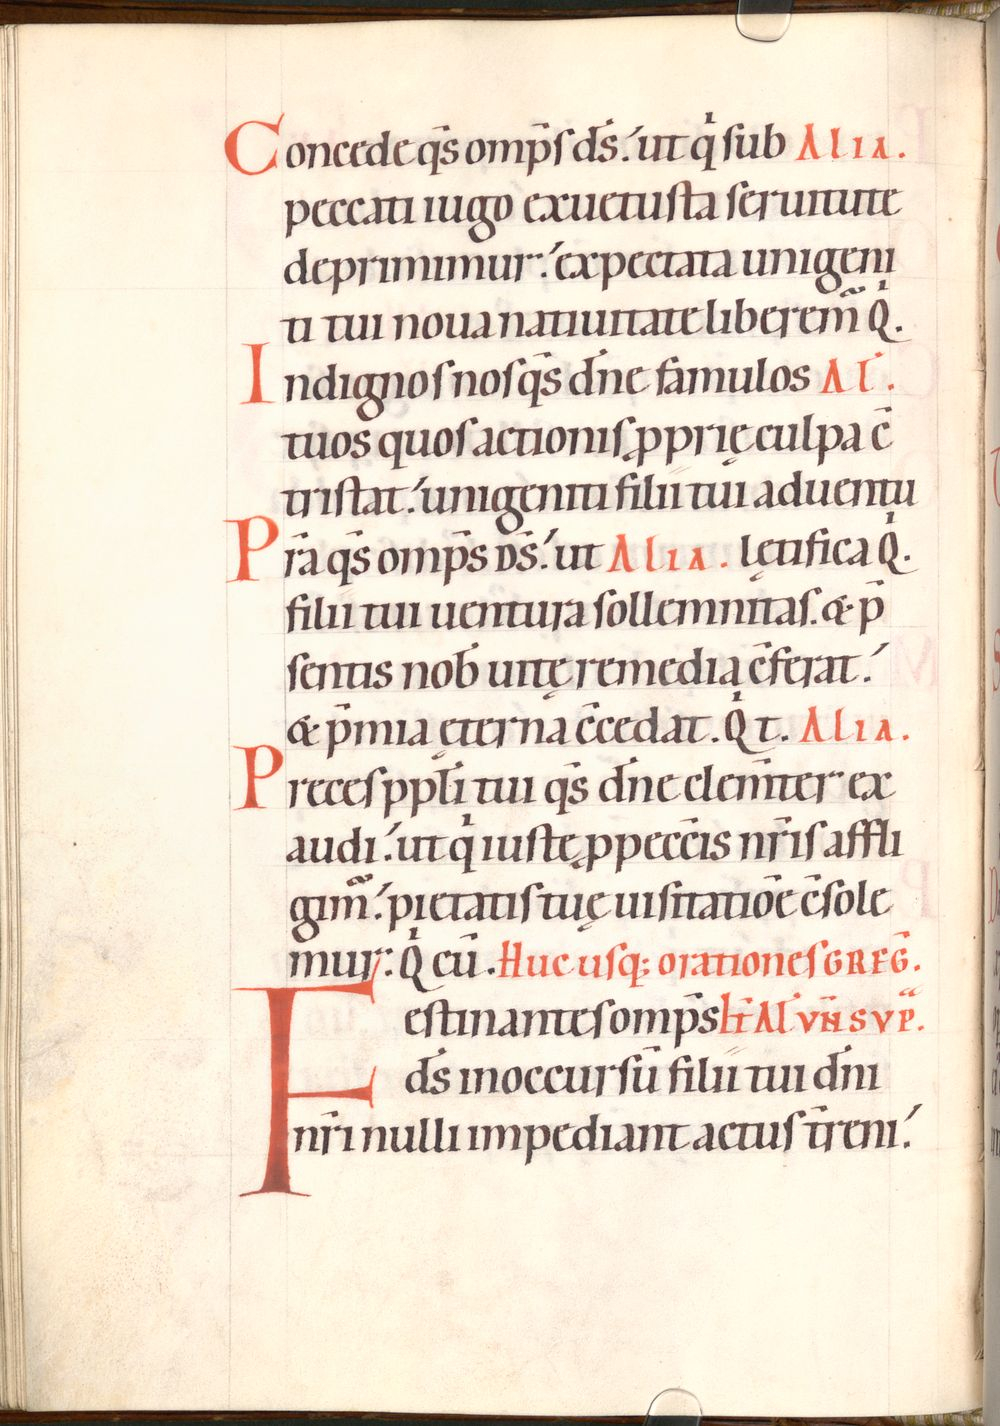 Concede q̄s omp̄s d̄s. ut qͥ sub Alia.
peccati iugo ex uetusta seruitute
deprimimur. expectata unigeni
ti tui noua natiuitate liberem̄ Qͥ.
Indignos nos q̄s dn̄e famulos Al̄.
tuos quos actionis ꝓprię culpa c̄
tristat. unigeniti filii tui aduentu
lętifica Qͥ.
Pr̄a q̄s omp̄s DS̄. ut Alia.
filii tui uentura sollemnitas. & p̄
sentis nob̄ uitę remedia c̄ferat.
& p̄mia ęterna c̄cedat. Qͥ t. Alia.
Preces ppl̄i tui q̄s dn̄e clem̄ter ex
audi. ut qͥ iuste ꝓ pecc̄is nr̄is affli
gim̄. pietatis tuę uisitatiōe c̄sole
mur. Qͥ cū. Huc usq; orationes GREḠ.
Festinantes omp̄s
d̄s in occursū filii tui dn̄i
nr̄i nulli impediant actus t̄reni.